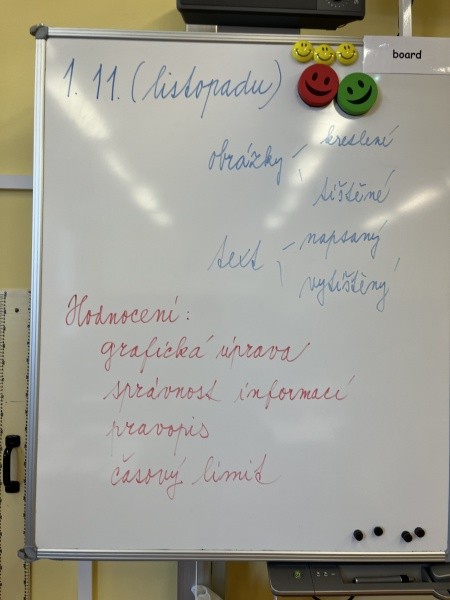 board
1. 11. (listopadu)
obrázky - kreslení
tištěné
text - napsaný
vytištěný
Hodnocení:
grafická úprava
správnost informací
pravopis
časový limit